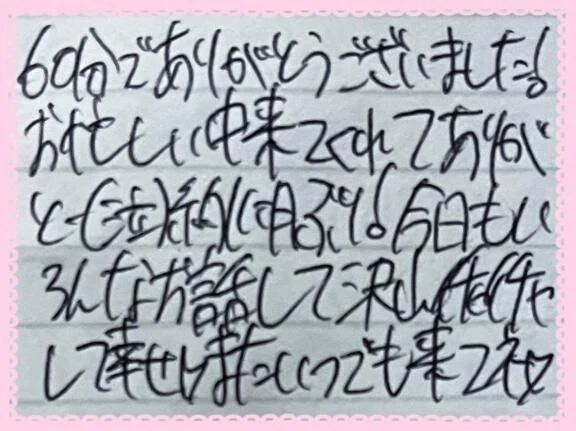 60分でありがとうございました！
お忙しい中来てくれてありが
と ぶり！今日もい
ろんなお話して沢山イチャイチャ
して幸せ またいつでも来てネ